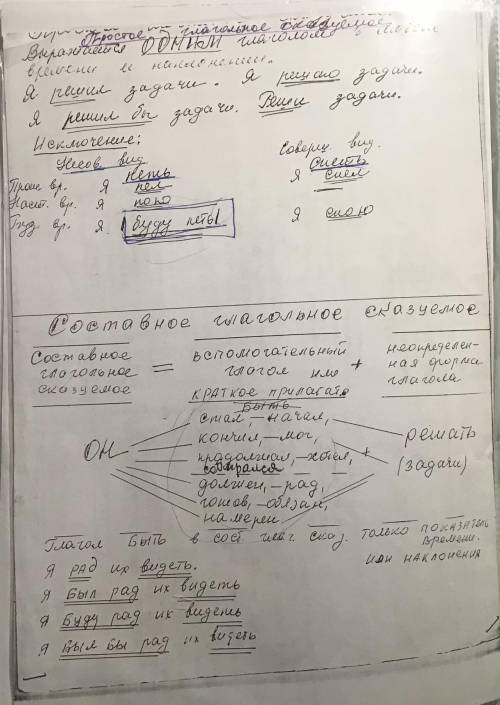 Простое глагольное сказуемое
Выражается ОДНИМ глаголом в любом
времени и наклонении.
Я решил задачи. Я решаю задачи.
Я решил бы задачи. Реши задачи.
Исключение:
Несов. вид Соверш. вид.
петь спеть
Прош вр. Я пел Я спел
Наст. вр. Я пою
Буд. вр. Я буду петь Я спою
Составное глагольное сказуемое
Составное глагольное сказуемое = вспомогательный глагол или краткое прилагат. + неопределен-ная форма глагола
быть
стал, – начал,
кончил, – мог,
ОН продолжал, – хотел, + решать
собирался
должен, – рад, (задачи)
готов, – обязан,
намерен
Глагол быть в сост. глаг. сказ. только показатель
времени.
или наклонения
Я рад их видеть.
Я был рад их видеть
Я буду рад их видеть
Я был бы рад их видеть